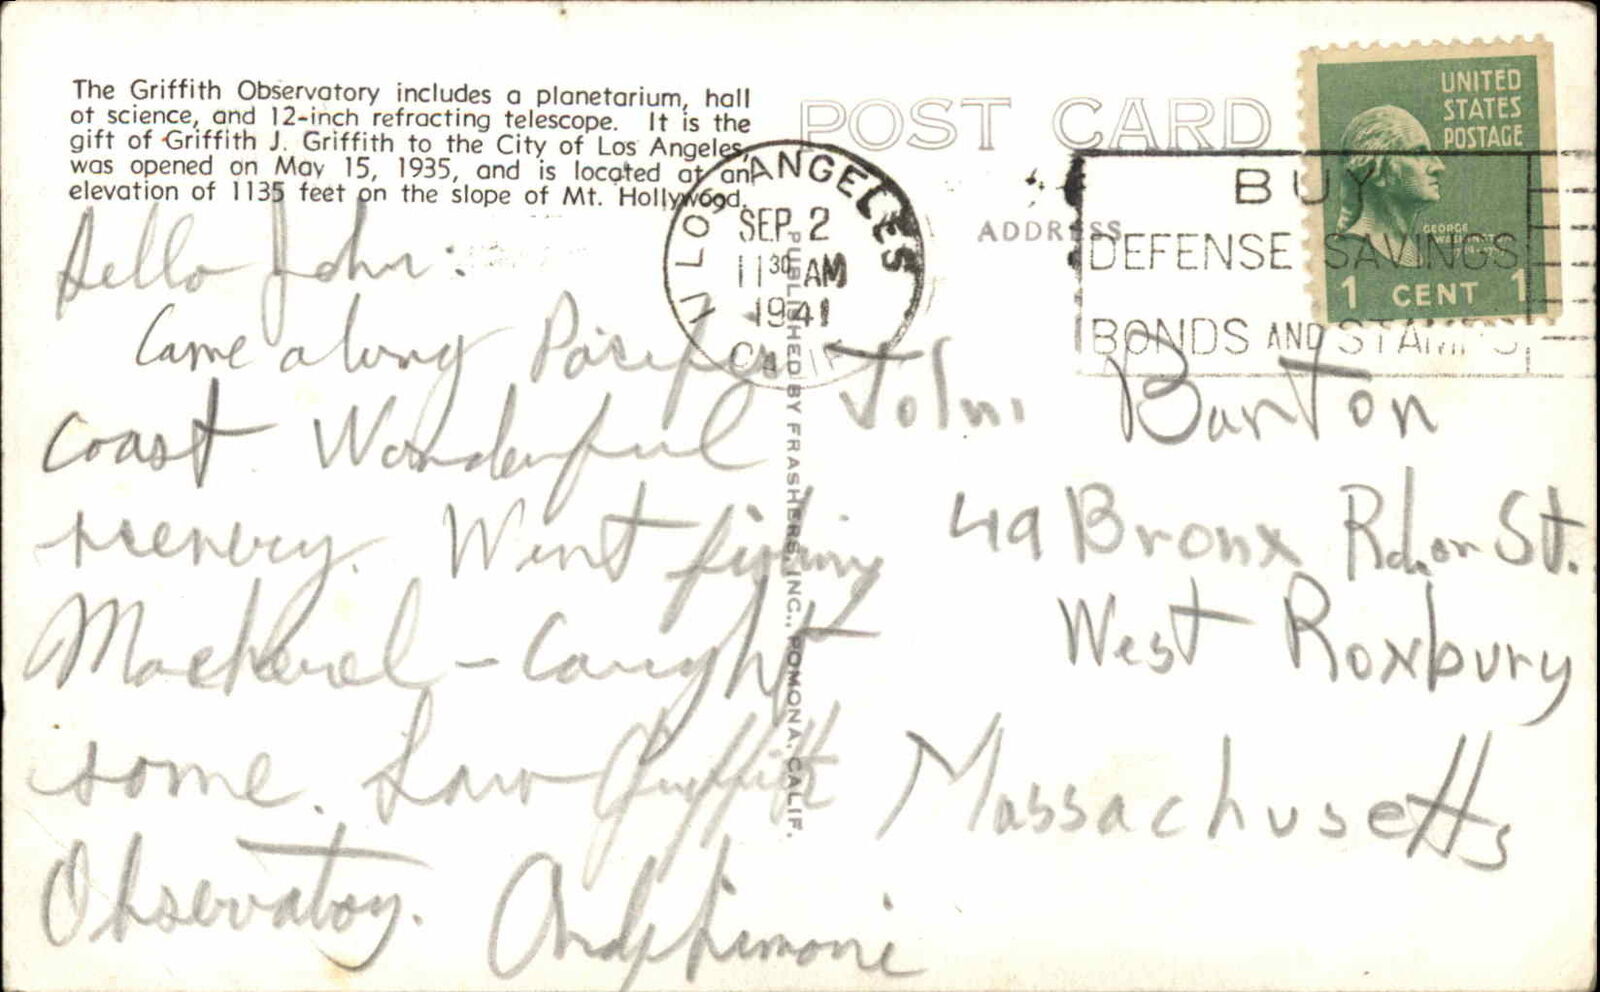 The Griffith Observatory includes a planetarium, hall
of science, and 12-inch refracting telescope. It is the
gift of Griffith J. Griffith to the City of Los Angeles,
was opened on May 15, 1935, and is located at an
elevation of 1135 feet on the slope of Mt. Hollywood.
POST CARD
ADDRESS
LOS ANGELES
SEP 2
11 30 AM
1941
CALIF
BUY
DEFENSE SAVINGS
BONDS AND STAMPS
UNITED
STATES
POSTAGE
GEORGE
WASHINGTON
1 CENT 1
PUBLISHED BY FRASHERS, INC., POMONA, CALIF.
Hello John:
Came along Pacific
Coast Wonderful
scenery. Went fishing
Mackerel - Caught
some. Saw Griffith
Observatory.
John Burton
49 Bronx St.
West Roxbury
Massachusetts